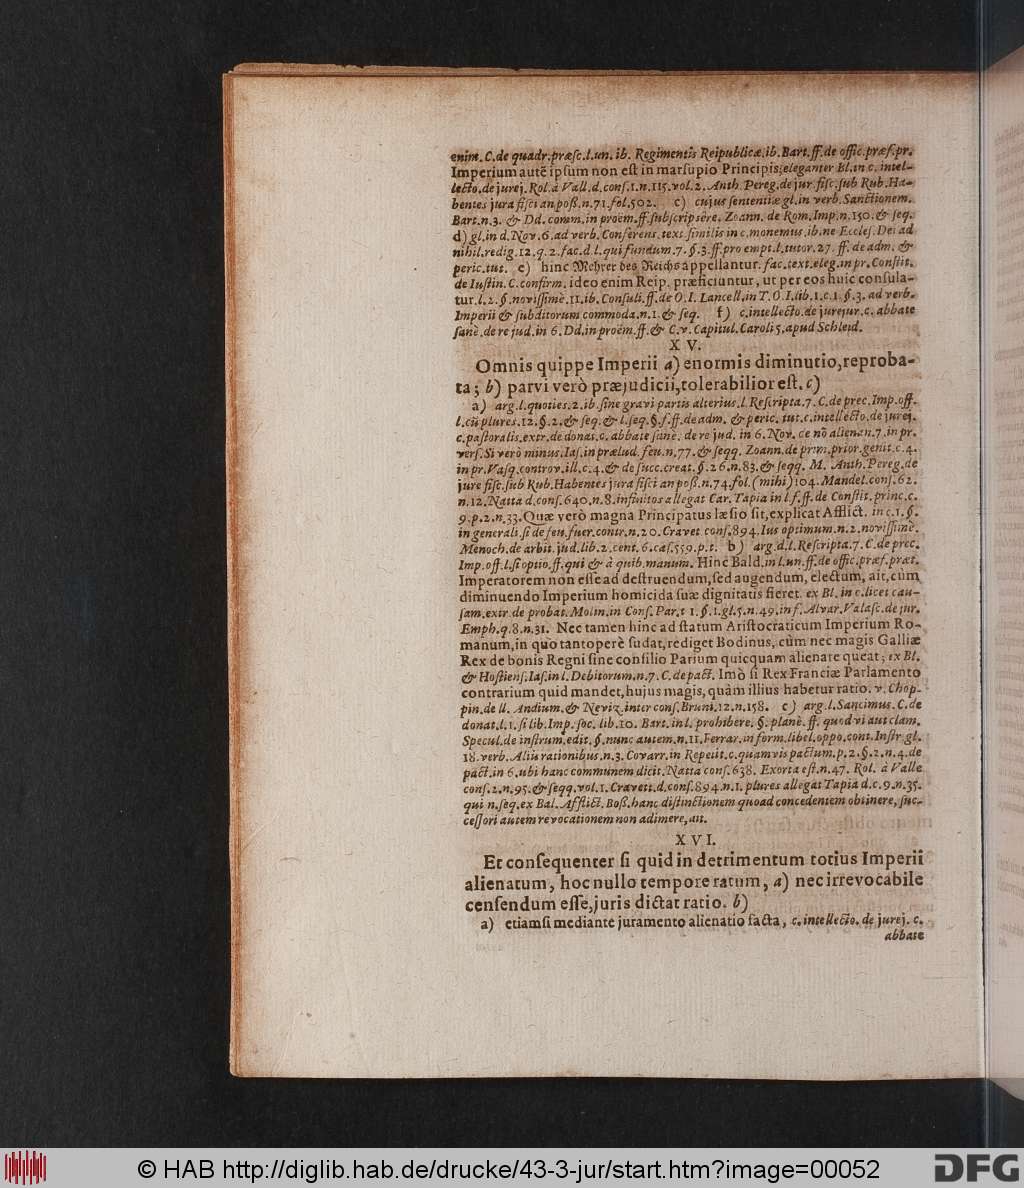 enim. C. de quadr. præsc. l. un. ib. Regimentis Reipublicæ. ib. Bart. ff. de offic. præf. pr.
Imperium autẽ ipsum non est in marsupio Principis; eleganter Bl. in c. intel-
lecto. de jurej. Rol. à Vall. d. cons. 1. n. 115. vol. 2. Anth. Pereg. de jur. fisc. sub Rub. Ha-
bentes jura fisci an poß. n. 71. fol. 502. c) cujus sententiæ gl. in verb. Sanctionem.
Bart. n. 3. & Dd. comm. in proëm. ff. subscripsêre. Zoann. de Rom. Imp. n. 150. & seq.
d) gl. in d. Nov. 6. ad verb. Conferens. text. similis in c. monemus. ib. ne Eccles. Dei ad
nihil. redig. 12. q. 2. fac. d. l. qui fundum. 7. §. 3. ff. pro empt. l. tutor. 27. ff. de adm. &
peric. tut. e) hinc Mehrer des Reichs appellantur. fac. text. eleg. in pr. Constit.
de Iustin. C. confirm. ideo enim Reip. præficiuntur, ut per eos huic consula-
tur. l. 2. §. novissimè. 11. ib. Consuli. ff. de O. I. Lancell. in T. O. I. lib. 1. c. 1. §. 3. ad verb.
Imperii & subditorum commoda. n. 1. & seq. f) c. intellecto. de jurejur. c. abbate
sanè. de re jud. in 6. Dd. in proëm. ff. & C. v. Capitul. Caroli 5. apud Schleid.
XV.
Omnis quippe Imperii a) enormis diminutio, reproba-
ta; b) parvi verò præjudicii, tolerabilior est. c)
a) arg. l. quoties. 2. ib. sine gravi partis alterius. l. Rescripta. 7. C. de prec. Imp. off.
l. cũ plures. 12. §. 2. & seq. & l. seq. §. f. ff. de adm. & peric. tut. c. intellecto. de jurej.
c. pastoralis. extr. de donat. c. abbate sanè. de re jud. in 6. Nov. de nõ alienan. 7. in pr.
vers. Si verò minus. Ias. in prælud. feu. n. 77. & seqq. Zoann. de prim. prior. genit. c. 4.
in pr. Vasq. controv. ill. c. 4. & de succ. creat. §. 26. n. 83. & seqq. M. Anth. Pereg. de
jure fisc. sub Rub. Habentes jura fisci an poß. n. 74. fol. (mihi) 104. Mandel. cons. 62.
n. 12. Natta d. cons. 640. n. 8. infinitos allegat Car. Tapia in l. f. ff. de Constit. princ. c.
9. p. 2. n. 33. Quæ verò magna Principatus læsio sit, explicat Afflict. in c. 1. §.
in generali. si de feu. fuer. contr. n. 20. Cravet cons. 894. Ius optimum. n. 2. novissimè.
Menoch. de arbit. jud. lib. 2. cent. 6. cas. 559. p. t. b) arg. d. l. Rescripta. 7. C. de prec.
Imp. off. l. si optio. ff. qui & à quib. manum. Hinc Bald. in l. un. ff. de offic. præf. præt.
Imperatorem non esse ad destruendum, sed augendum, electum, ait, cùm
diminuendo Imperium homicida suæ dignitatis fieret. ex Bl. in c. licet cau-
sam. extr. de probat. Molin. in Cons. Par. t 1. §. 1. gl. 5. n. 49. in f. Alvar. Valasc. de jur.
Emph. q. 8. n. 31. Nec tamen hinc ad statum Aristocraticum Imperium Ro-
manum, in quo tantoperè sudat, rediget Bodinus, cùm nec magis Galliæ
Rex de bonis Regni sine consilio Parium quicquam alienare queat; ex Bl.
& Hostiens. Ias. in l. Debitorum. n. 7. C. de pact. Imò si Rex Franciæ Parlamento
contrarium quid mandet, hujus magis, quàm illius habetur ratio. v. Chop-
pin. de ll. Andium. & Neviz. inter cons. Bruni. 12. n. 158. c) arg. l. Sancimus. C. de
donat. l. 1. si lib. Imp. soc. lib. 10. Bart. in l. prohibere. §. planè. ff. quod vi aut clam.
Specul. de instrum. edit. §. nunc autem. n. 11. Ferrar. in form. libel. oppo. cont. Instr. gl.
18. verb. Aliis rationibus. n. 3. Covarr. in Repetit. c. quamvis pactum. p. 2. §. 2. n. 4. de
pact. in 6. ubi hanc communem dicit. Natta cons. 638. Exorta est. n. 47. Rol. à Valle
cons. 2. n. 95. & seqq. vol. 1. Craveti. d. cons. 894. n. 1. plures allegat Tapia d. c. 9. n. 35.
qui n. seq. ex Bal. Afflict. Boß. hanc distinctionem quoad concedentem obtinere, suc-
cessori autem revocationem non adimere, ait.
XVI.
Et consequenter si quid in detrimentum totius Imperii
alienatum, hoc nullo tempore ratum, a) nec irrevocabile
censendum esse, juris dictat ratio. b)
a) etiamsi mediante juramento alienatio facta, c. intellecto. de jurej. c.
abbate
© HAB http://diglib.hab.de/drucke/43-3-jur/start.htm?image=00052
DFG